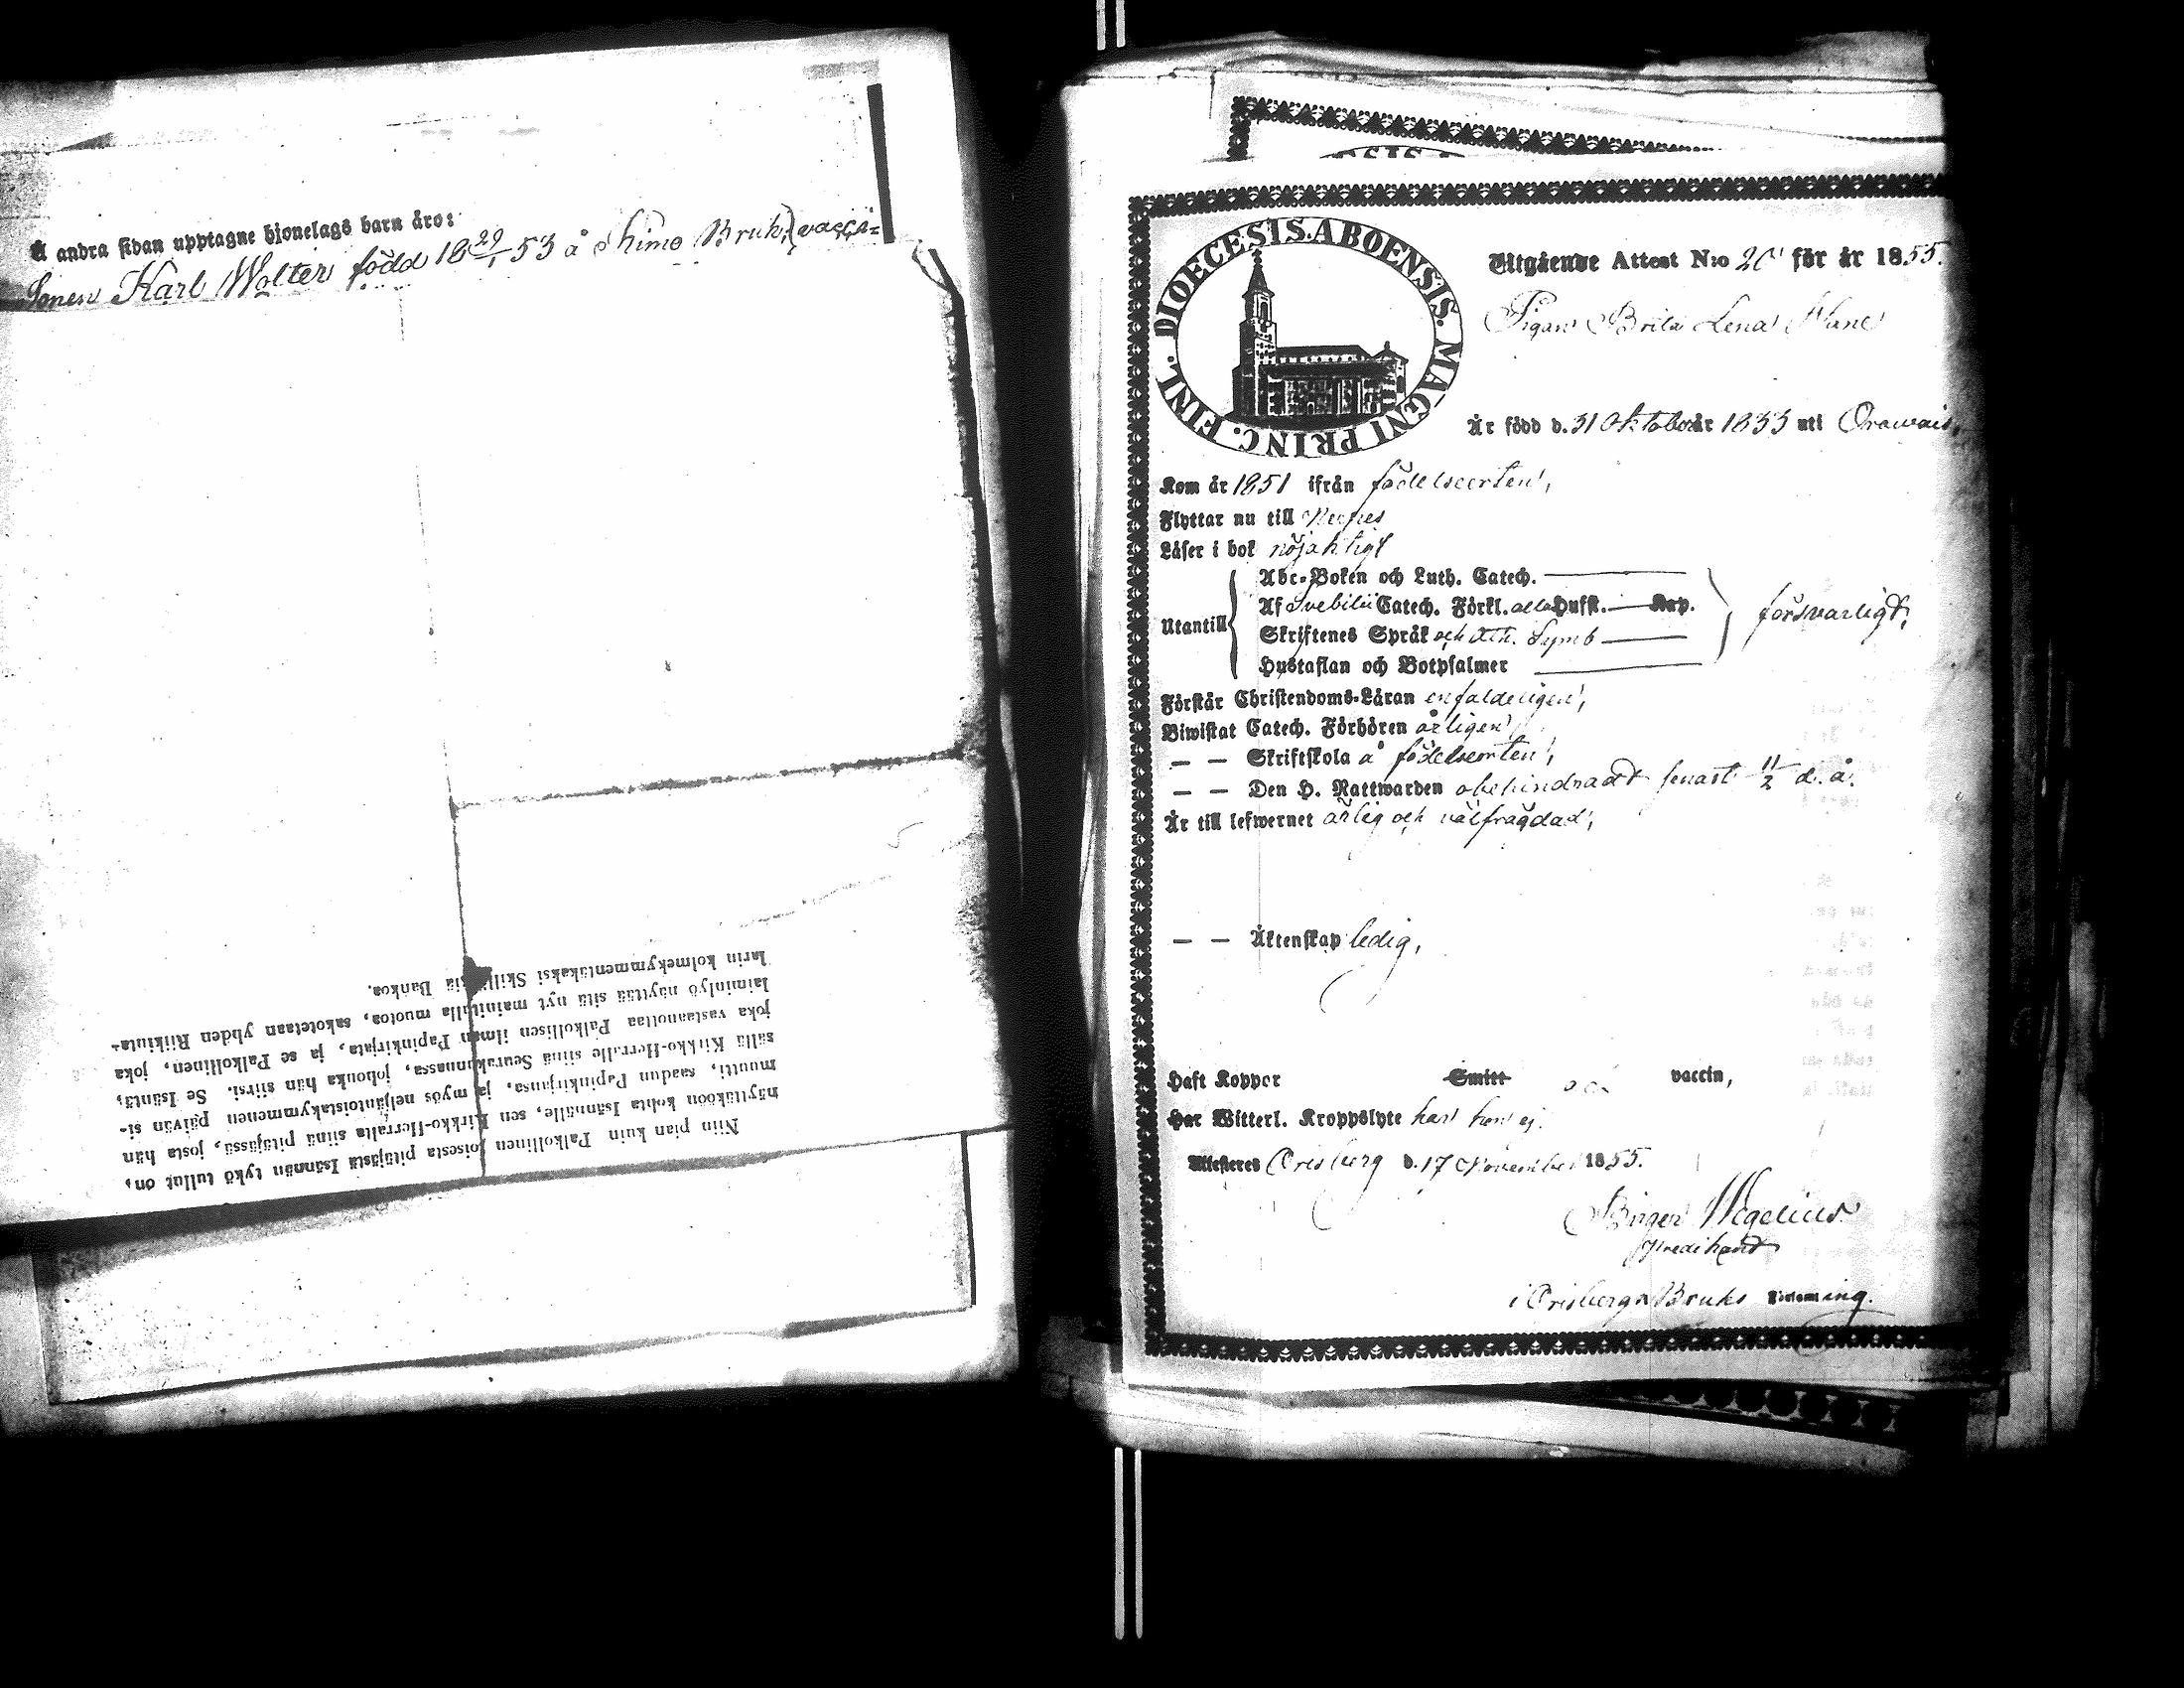 Å andra sidan upptagne hjonelags barn äro:
Sonen Karl Wolter född 18 29/1 53 å Kimo Bruk, vacci-
Niin pian kuin Palkollinen toisesta pitäjästä Isännän tykö tullut on,
näyttäköön kohta Isännälle, sen Kirkko-Herralta siinä pitäjässä, josta hän
muutti, saadun Papinkirjansa, ja myös neljäntoistakymmenen päivän si-
sällä Kirkko-Herralle siinä Seurakunnassa, johonka hän siirsi. Se Isäntä,
joka vastaanottaa Palkollisen ilman Papinkirjata, ja se Palkollinen, joka
laiminlyö näyttää sitä nyt mainitulla muotoa, sakotetaan yhden Riikinta-
larin kolmekymmentäkaksi Skillinkiä Bankoa.
DIOECESIS ABOENSIS. MAGNI PRINC. FINL.
Utgående Attest N:o 20 för år 1855.
Pigan Brita Lena
Är född d. 31 Oktober år 1833 uti Orawais,
Kom år 1851 ifrån födelseorten,
Flyttar nu till
Läser i bok nöjaktigt
Utantill
Abc-Boken och Luth. Catech.
Af Svebilii Catech. Förkl. alla Hufst. Kap.
Skriftenes Språk och Ath. Symb
Hustaflan och Botpsalmer
försvarligt,
Förstår Christendoms-Läran enfaldeligen,
Biwistat Catech. Förhören årligen,
— — Skriftskola å födelseorten,
— — Den H. Nattwarden obehindradt senast 11/2 d. å.
Är till lefwernet ärlig och välfrägdad,
— — Äktenskap ledig,
Haft Koppor Smitt vaccin,
Har Witterl. Kroppslyte har hon ej.
Attesteras Orisberg d. 17 November 1855.
Birger Wegelius
Predikant
i Orisbergs Bruks Församling.